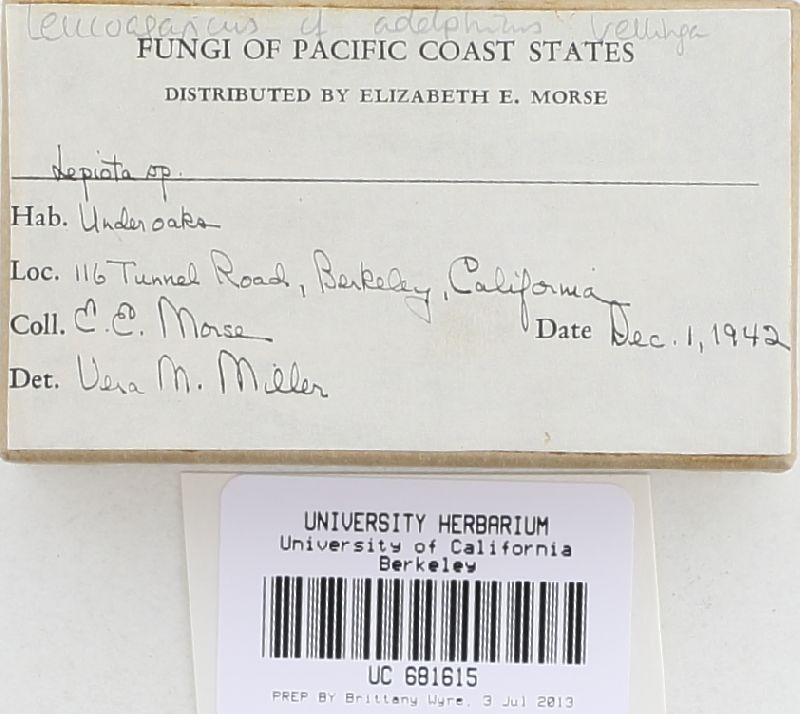 Leucoagaricus cf adelphicus Vellinga
FUNGI OF PACIFIC COAST STATES
DISTRIBUTED BY ELIZABETH E. MORSE
Lepiota sp.
Hab. Under oaks
Loc. 116 Tunnel Road, Berkeley, California
Coll. E. E. Morse Date Dec. 1, 1942
Det. Vera M. Miller
UNIVERSITY HERBARIUM
University of California
Berkeley
UC 681615
PREP BY Brittany Wyre, 3 Jul 2013